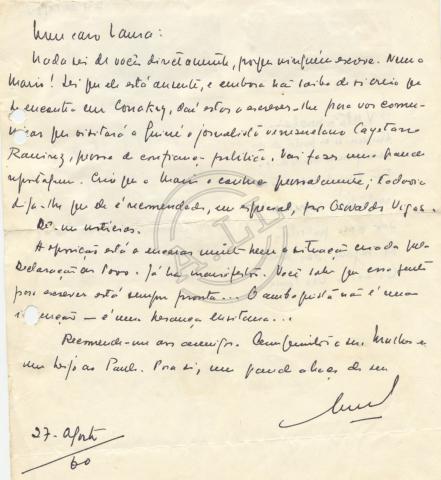 Meu caro Lama:
Nada sei de vocês directamente, porque ninguém escreve. Nem o
Mario! Sei que ele está ausente, e embora não saiba de si creio que
se encontra em Conakry, daí estar a escrever-lhe para vos comu-
nicar que visitará a Guiné o jornalista venezuelano Cayetano
Ramirez, pessoa de confiança política. Vai fazer uma grande
reportagem. Creio que o Mario o conhece pessoalmente; todavia
diga-lhe que ele é recomendado, em especial, por Oswaldo Vigas.
Dê-me notícias.
A oposição está a encarar muito bem a situação criada pela
Declaração ao Povo. Já há manifestos. Você sabe que essa gente
para escrever está sempre pronta... O ambaquista não é uma
invenção — é uma herança lusitana...
Recomende-me aos amigos. Cumprimentos a sua Mulher e
um beijo ao Paulo. Para si, um grande abraço do seu
27-Agosto
60
ALL